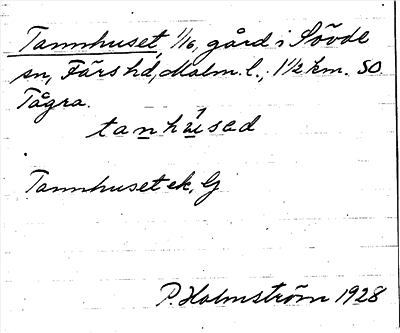 Tannhuset, 1/16, gård i Sövde
sn, Färs hd, Malm. l., 1 1/2 km. SO.
Tågra.
tanhúsəd
Tannhuset ek, G
P. Holmström 1928